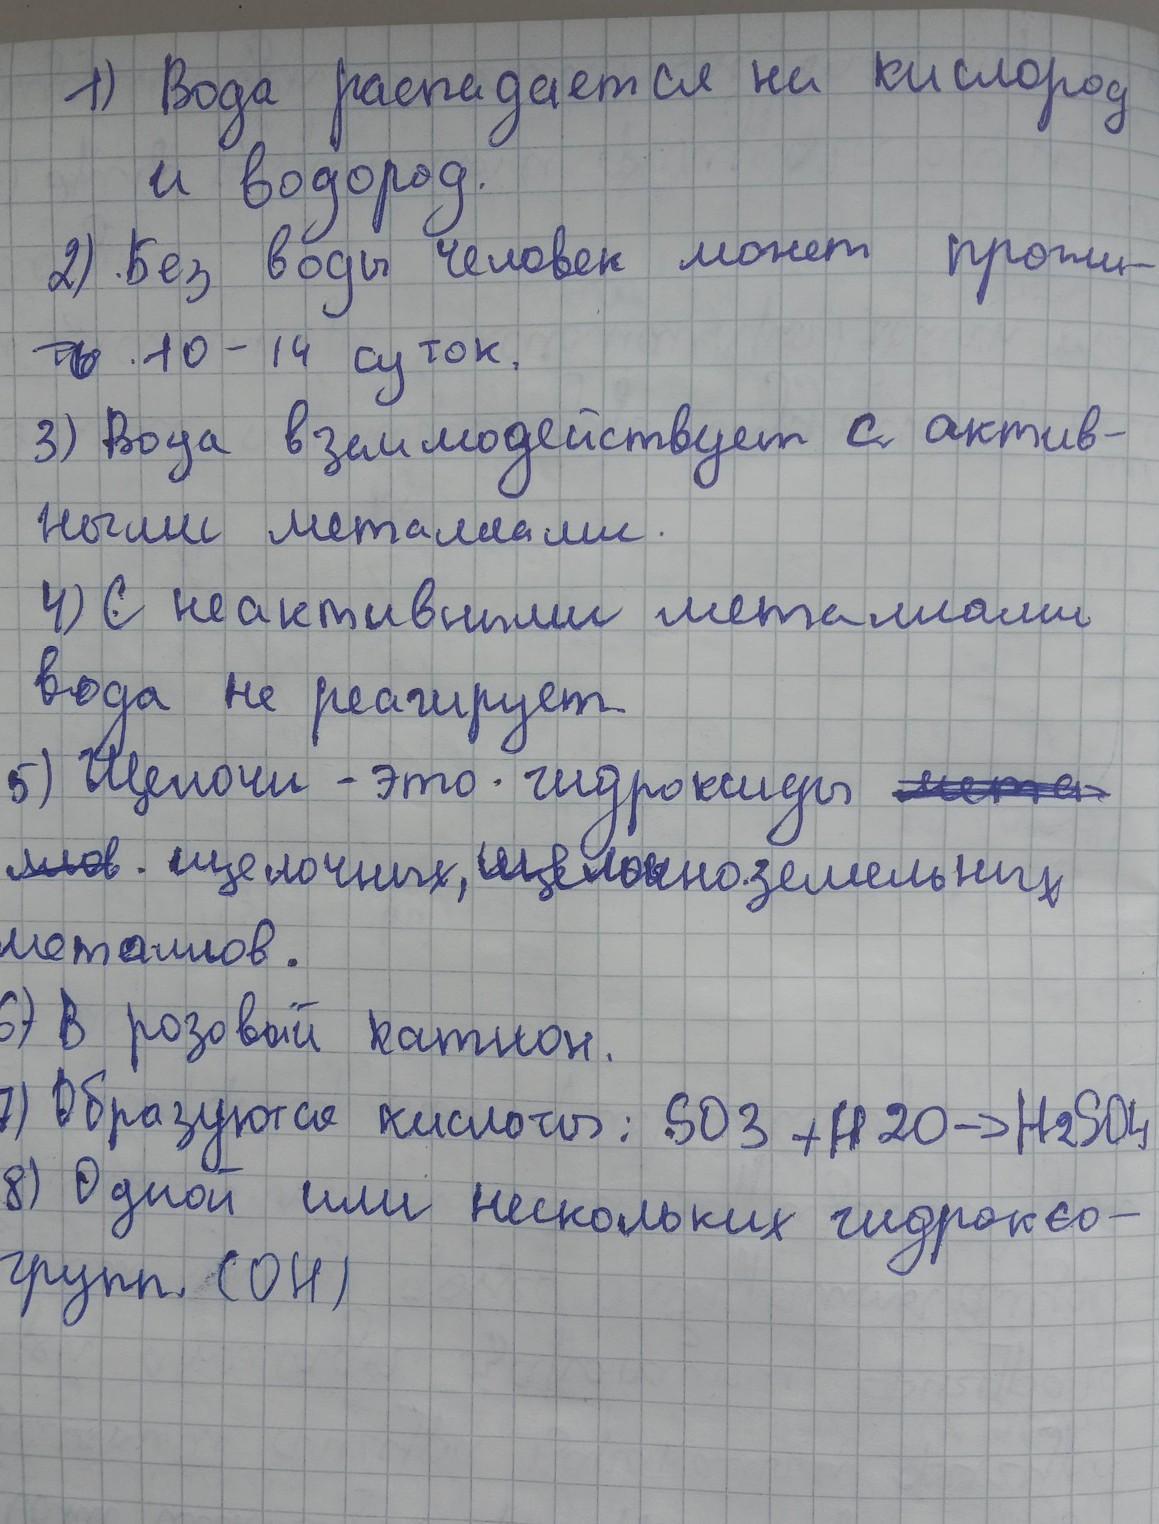 1) Вода распадается на кислород
и водород.
2) Без воды человек может прожи-
ть 10-14 суток.
3) Вода взаимодействует с актив-
ными металлами.
4) С неактивными металлами
вода не реагирует
5) Щелочи - это гидроксиды мета-
ллов щелочных, щелочноземельных
металлов.
6) В розовый катион.
7) Образуются кислоты: SO3 + H2O -> H2SO4
8) Одной или нескольких гидроксо-
групп. (OH)